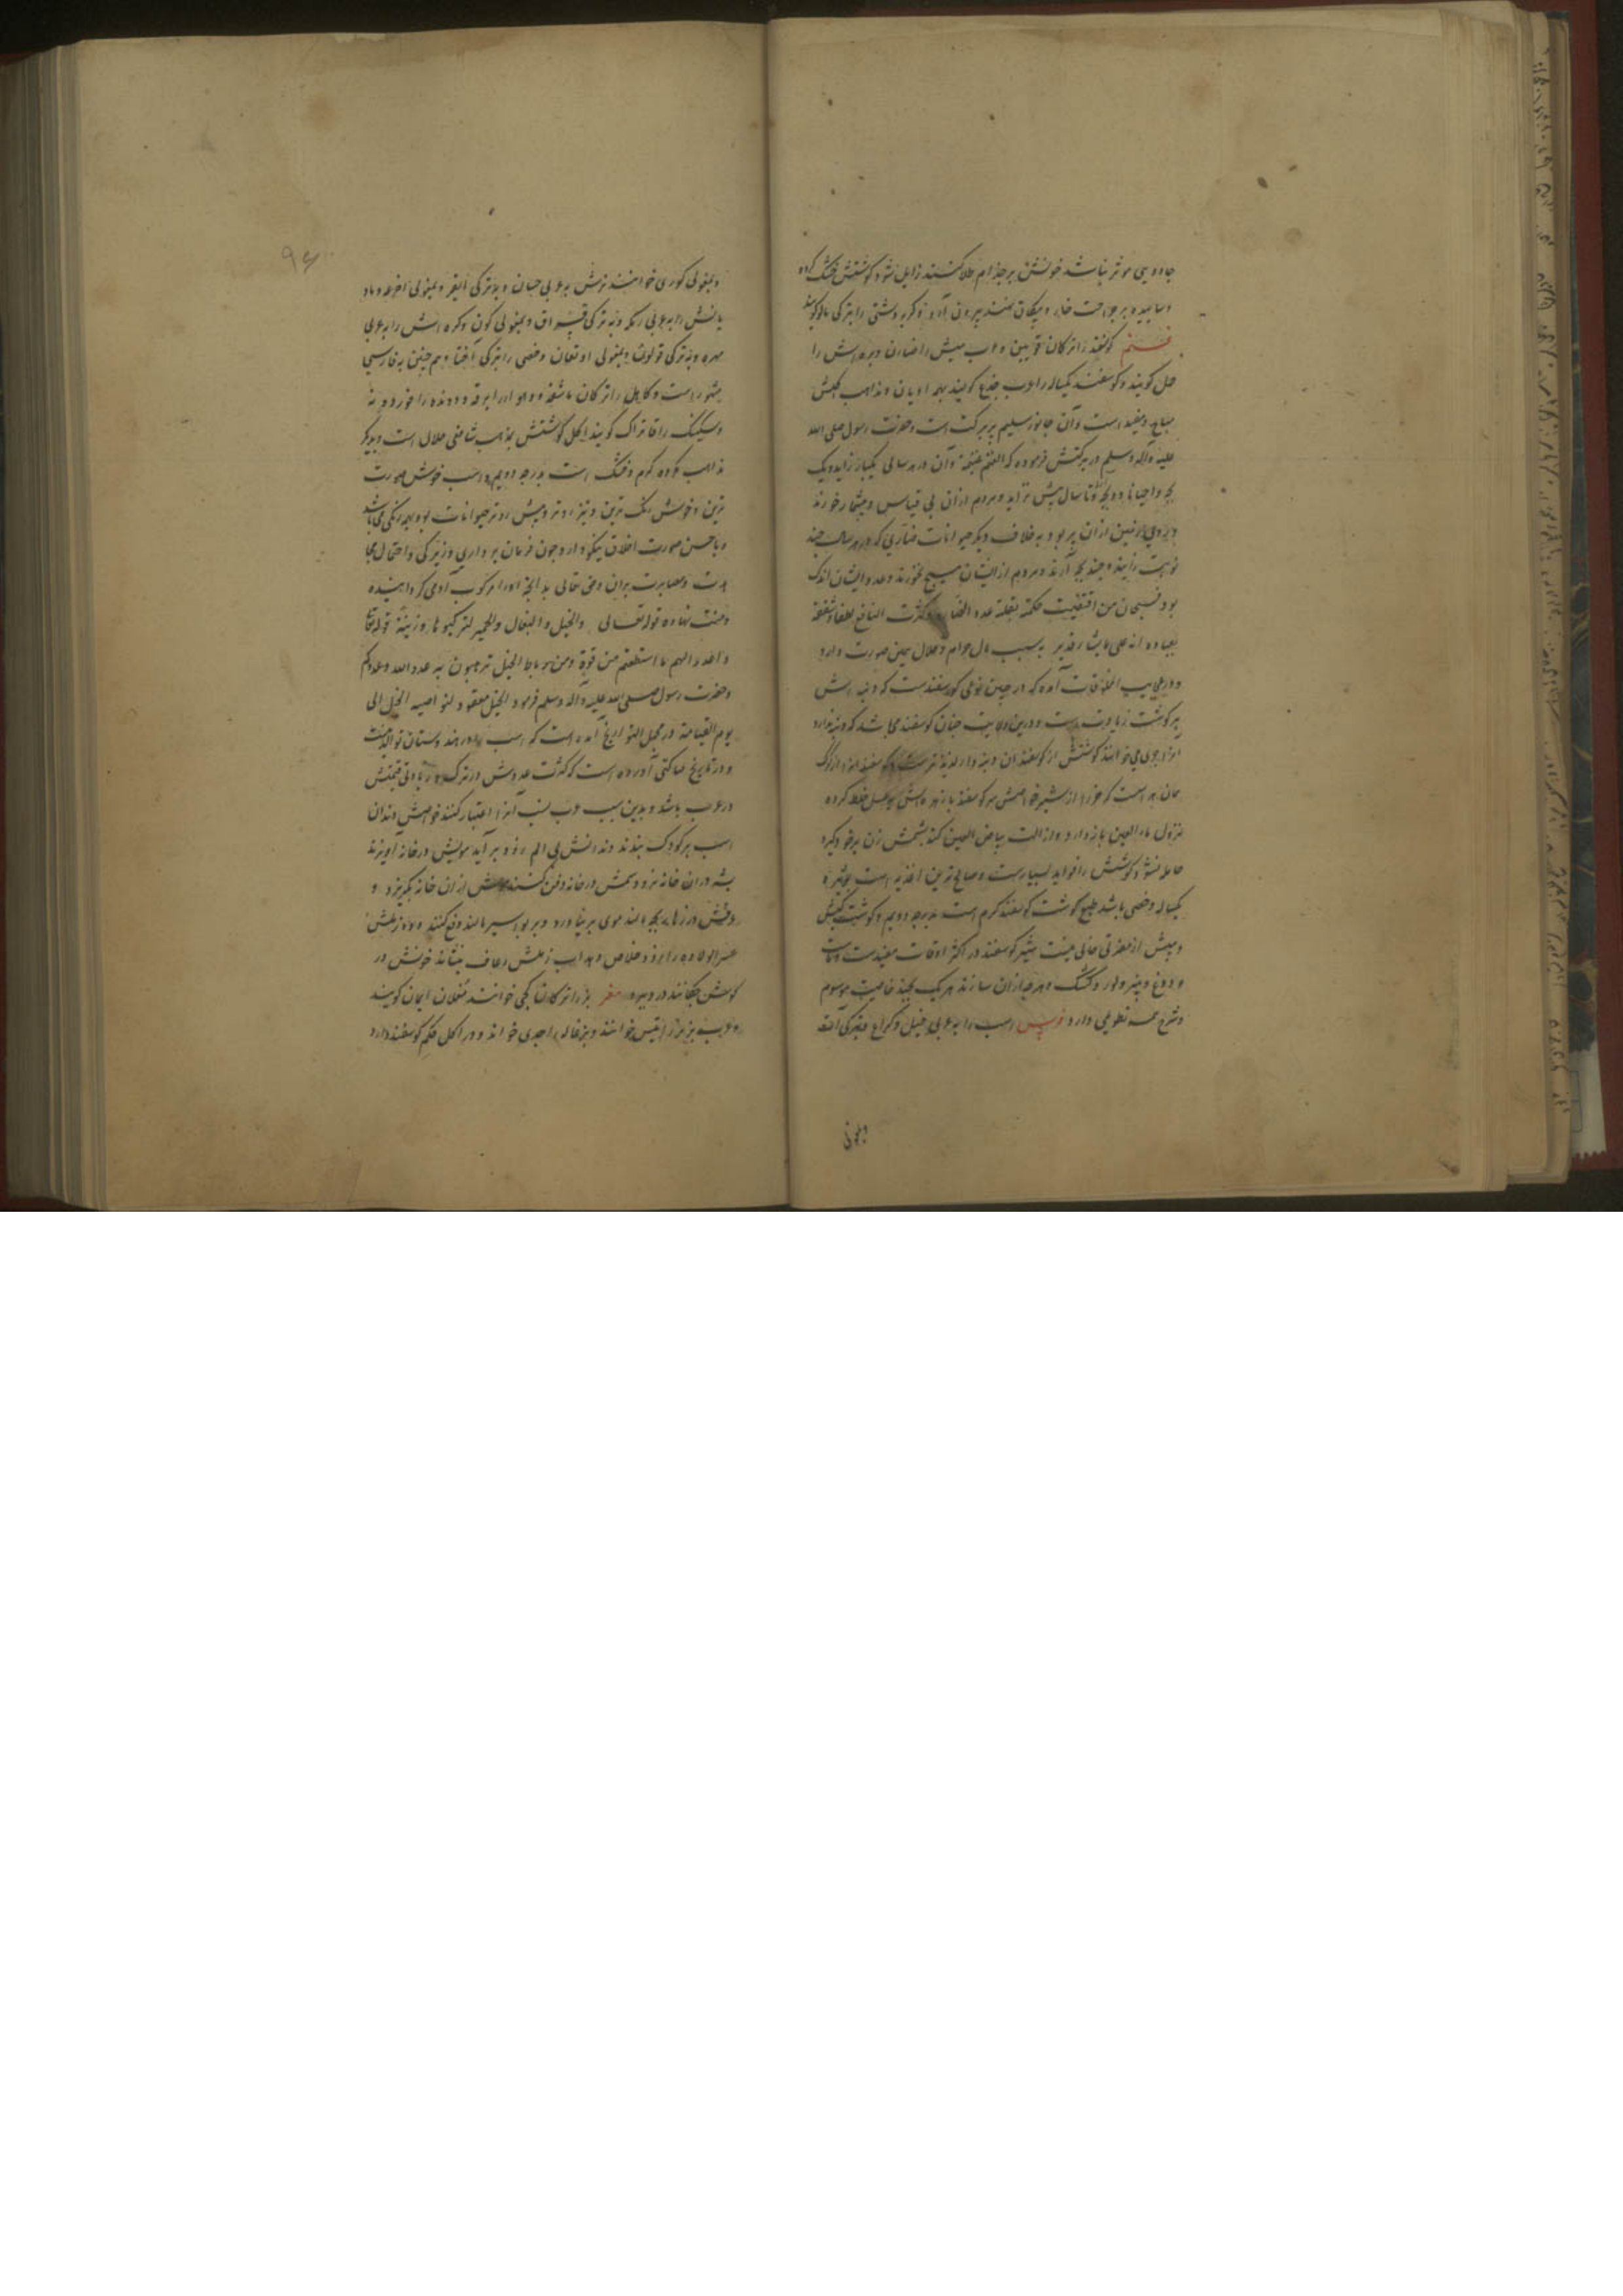 جادویی موثر نباشد خونش بر جذام طلا کنند زایل شود گوشتش خشک کرده
و ساییده بر جراحت خار و پیکان نهند بیرون آرد و گربه دشتی را بترکی مالو گویند
غنم گوسفند را ترکان قوین و عرب میش را ضان و بره‌اش را
حمل گویند و گوسفند یکساله را عرب جذع گویند بهمه ادیان و مذاهب اکلش
مباح و مفید است و آن جانور سلیم پر برکت است حضرت رسول صلی الله
علیه و آله و سلم در برکتش فرموده که الغنم غنیمة و آن در هر سالی یکبار زاید و یک
بچه و احیانا دو بچه و تا سال بیش نزاید و مردم از آن بی قیاس و بیشمار خورند
و روی زمین از آن پر بود به خلاف دیگر حیوانات ضاری که در هر سال چند
نوبت زایند و چند بچه آرند و مردم از ایشان هیچ نخورند و عدد ایشان اندک
بود فسبحان من اقتضیت حکمته بقلة عدد الضار و کثرت النافع لطفا و شفقة
بعباده انه علی ما یشاء قدیر به سبب مال حرام و حلال همین صورت دارد
و در عجایب المخلوقات آمده که در چین نوعی گوسفندست که دنبه‌اش
بر گوشت زیادت است و درین ولایت چنان گوسفند می‌باشد که دنبه ندارد
آنرا می خوانند گوشتش از گوسفندان دنبه دار لذیذتر است و گوسفند را از گرگ
همان بد است که خر را از شیر خواصش سر گوسفند با زهره‌اش به عسل خلط کرده
نزول ماء العین باز دارد و ازالت بیاض العین کند پشمش زن بر خود گیرد
حامله نشود گوشتش را فواید بسیارست و صالح ترین اغذیه است
یکساله و خصی باشد طبع گوشت گوسفند گرم است بدرجه دویم و گوشت کبش
و میش از مضرتی خالی نیست شیر گوسفند در اکثر اوقات مفیدست و ماست
و دوغ و پنیر و لور و کشک و هر چه از آن سازند هر یک بچند خاصیت موسوم
و شرح همه تطویلی دارد فرس اسب را به عربی خیل و کراع و بترکی آت
و بمغولی
۹۶
و بمغولی موری خوانند نرش به عربی حصان و بترکی ایغر و بمغولی اجرغه و ماد
یانش را به عربی رمکه و به ترکی قیسراق و بمغولی کون و کره‌اش را به عربی
مهره و به ترکی قولون و بمغولی اونغان و خصی را بترکی آختا و هم چنین به فارسی
مشهور است و کاهل را ترکان
و سکسک را قاتراک گویند اکل گوشتش بمذهب شافعی حلال است و بدیگر
مذاهب مکروه گرم و خشک است بدرجه دویم و اسب خوش صورت
ترین و خوش رنگ ترین و تیز روتر و پیش روتر حیوانات بود و بهمه رنگی می باشد
و با حسن صورت اخلاق نیکو دارد چون فرمان برداری و زیرکی و احتمال مجا
هدت و مصابرت بران و حق تعالی بدانچه او را مرکوب آدمی گردانیده
و منت نهاده قوله تعالی والخیل و البغال والحمیر لترکبوها و زینة قوله تعالی
و اعدوا لهم ما استطعتم من قوة و من رباط الخیل ترهبون به عدو الله وعدوکم
و حضرت رسول صلی الله علیه و آله و سلم فرمود الخیل معقود لنواصیه الخیر الی
یوم القیامة در مجمل التواریخ آمده است که اسب را در هندوستان توالد نیست
و در تاریخ بناکتی آورده است که کثرت عددش در ترک و زیادتی قیمتش
در عرب باشد و بدین سبب عرب نسب آنرا اعتبار کنند خواصش دندان
اسب بر کودک بندند دندانش بی الم زود برآید مویش در خانه آویزند
پشه در آن خانه نرود سمش در خانه دفن کنند موش از آن خانه بگریزد و
عرقش در زهار بچه مالند موی بر نیاورد و بر بواسیر مالند دفع کند و دود زبلش
عسر الولاده را بزود خلاص دهد اب زبلش رعاف بنشاند خونش در
گوش چکانند درد ببرد معز بز را ترکان کچی خوانند مغولان ایمان گویند
و عرب بز نر را تیس خوانند و بزغاله را جدی خوانند و در اکل حکم گوسفند دارد